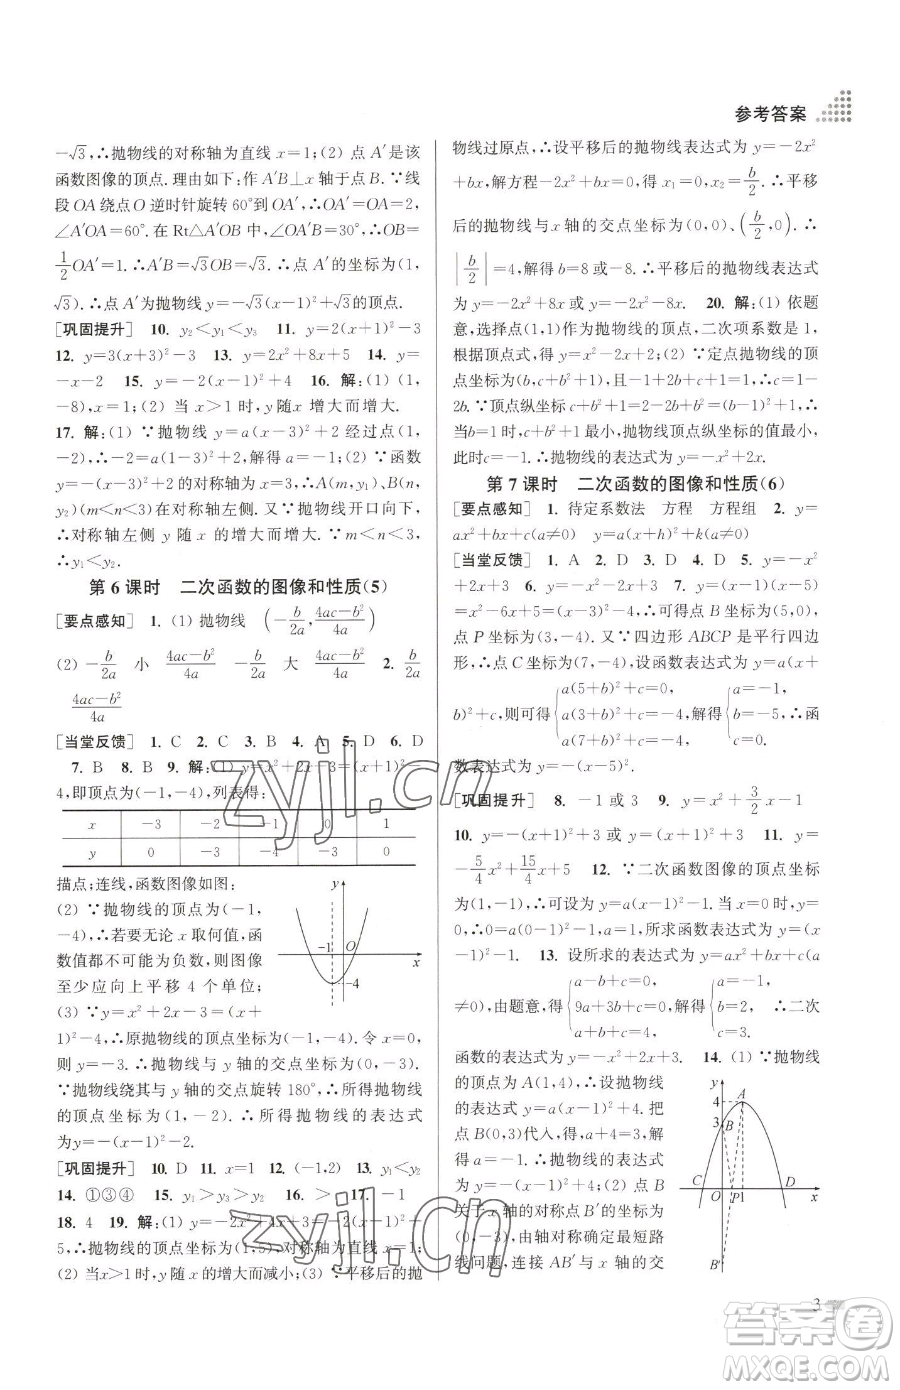 参考答案
-√3,∴抛物线的对称轴为直线 x=1;(2) 点 A′是该
函数图像的顶点. 理由如下:作 A′B⊥x 轴于点 B. ∵线
段 OA 绕点 O 逆时针旋转 60°到 OA′,∴OA′=OA=2,
∠A′OA=60°. 在 Rt△A′OB 中,∠OA′B=30°,∴OB=
1/2 OA′=1. ∴A′B=√3OB=√3. ∴点 A′的坐标为(1,
√3). ∴点 A′为抛物线 y=-√3(x-1)²+√3的顶点.
[巩固提升] 10. y₂<y₁<y₃ 11. y=2(x+1)²-3
12. y=3(x+3)²-3 13. y=2x²+8x+5 14. y=
-x-2 15. y=-2(x-1)²+4 16. 解:(1) (1,
-8),x=1;(2) 当 x>1 时,y 随 x 增大而增大.
17. 解:(1) ∵抛物线 y=a(x-3)²+2 经过点(1,
-2),∴-2=a(1-3)²+2. ∴a=-1;(2) ∵函数
y=-(x-3)²+2 的对称轴为 x=3,A(m,y₁)、B(n,
y₂)(m<n<3)在对称轴左侧,又∵抛物线开口向下,
∴对称轴左侧 y 随 x 的增大而增大. ∵m<n<3,
∴y₁<y₂.
第 6 课时 二次函数的图像和性质(5)
[要点感知] 1. (1) 抛物线 (-b/2a, (4ac-b²)/4a)
(2) -b/2a 小 (4ac-b²)/4a -b/2a 大 (4ac-b²)/4a 2. b/2a
(4ac-b²)/4a
[当堂反馈] 1. C 2. C 3. B 4. A 5. D 6. D
7. B 8. B 9. 解:(1) y=x²+2x-3=(x+1)²-
4,即顶点为(-1,-4),列表得:
x -3 -2 -1 0 1
y 0 -3 -4 -3 0
描点;连线,函数图像如图:
(2) ∵抛物线的顶点为(-1,
-4),∴若要无论 x 取何值,函
数值都不可能为负数,则图像
至少应向上平移 4 个单位;
(3) ∵y=x²+2x-3=(x+
1)²-4,∴原抛物线的顶点坐标为(-1,-4). 令 x=0,
则 y=-3. ∴抛物线与 y 轴的交点坐标为(0,-3).
∵抛物线绕其与 y 轴的交点旋转 180°,∴所得抛物线
的顶点坐标为(1,-2). ∴所得抛物线的表达式
为y=-(x-1)²-2.
[巩固提升] 10. D 11. x=1 12. (-1,2) 13. y₁<y₂
14. ①③④ 15. y₁>y₃>y₂ 16. > 17. -1
18. 4 19. 解:(1) y=-2x²+4x+3=-2(x-1)²+
5,∴抛物线的顶点坐标(1,5),对称轴为直线 x=1;
(2) 当x>1 时,y 随 x 的增大而减小;(3) ∵平移后的抛
-1 O x -4 y
物线过原点,∴设平移后的抛物线表达式为 y=-2x²
+bx,解方程-2x²+bx=0,得 x₁=0,x₂=b/2. ∴平移
后的抛物线与 x 轴的交点坐标为(0,0)、(b/2,0). ∴
|b/2|=4,解得 b=8或-8. ∴平移后的抛物线表达式
为 y=-2x²+8x或 y=-2x²-8x. 20. 解:(1) 依题
意,选择点(1,1)作为抛物线的顶点,二次项系数是 1,
根据顶点式得:y=x²-2x+2;(2) ∵定点抛物线的顶
点坐标为(b,c+b²+1),且-1+2b+c+1=1,∴c=1-
2b. ∵顶点纵坐标 c+b²+1=2-2b+b²=(b-1)²+1,∴
当b=1 时,c+b²+1 最小,抛物线顶点纵坐标的值最小,
此时c=-1,∴抛物线的表达式为 y=-x²+2x.
第 7 课时 二次函数的图像和性质(6)
[要点感知] 1. 待定系数法 方程 方程组 2. y=
ax²+bx+c(a≠0) y=a(x+h)²+k(a≠0)
[当堂反馈] 1. A 2. D 3. D 4. D 5. y=-x²
+2x+3 6. y=-x²+2x+3 7. 解:(1) ∵y=(x-5)(x-1)
=x²-6x+5=(x-3)²-4,∴可得点 B 坐标为(5,0),
点 P 坐标为(3,-4). 又∵四边形 ABCP 是平行四边形,
∴点 C 坐标为(7,-4),设函数表达式为 y=a(x+
b)²+c,则可得{a(5+b)²+c=0, a(3+b)²+c=-4, a(7+b)²+c=-4, 解得{a=-1, b=-5, c=0. ∴函
数表达式为 y=-(x-5)².
[巩固提升] 8. -1 或 3 9. y=x²+3/2x-1
10. y=-(x-1)²+3 或 y=-(x+1)²+3 11. y=
-5/4x²+15/4x+5 12. ∵二次函数图像的顶点坐标
为(1,-1),∴设y=a(x-1)²-1. ∵函数图像经过原点
(0,0),∴0=a(0-1)²-1,a=1,∴所求函数表达式为 y=
(x-1)²-1. 13. 设所求的表达式为 y=ax²+bx+c(a
≠0),由题意,得{a-b+c=0, 9a+3b+c=0, a+b+c=4, 解得{a=-1, b=2, c=3. ∴二次
函数的表达式为 y=-x²+2x+3. 14. (1) ∵抛物线
的顶点为 A(1,4),∴设抛物线
的表达式 y=a(x-1)²+4,把
点 B(0,3)代入,得 a+4=3. 解得
a=-1. ∴抛物线的表达式
为 y=-(x-1)²+4;(2) 点 B
关于 x 轴的对称点 B′的坐标为
(0,-3),由轴对称确定最短路
线问题,连接 AB′与 x 轴的交
y A 4 3 B C O P 1 D x B′
3
zyjl.cn
答案圈
MXQE.COM